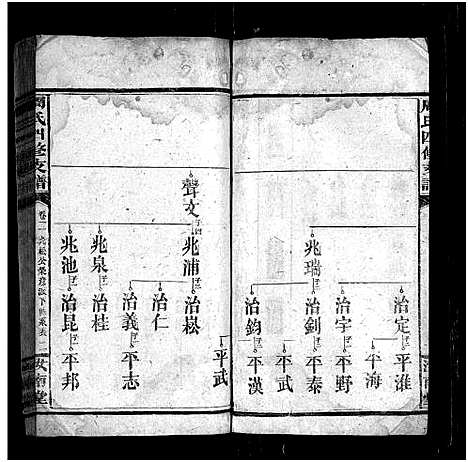 周氏四修支譜
治定 平淮
平海
治宇 平野
兆瑞 治釗 平泰
平武
治鈞 平漢
聲文
兆浦 治崧 平武
治仁
治義 平志
兆泉 治桂
兆池 治昆 平邦
周氏四修支譜
卷二
汝南堂